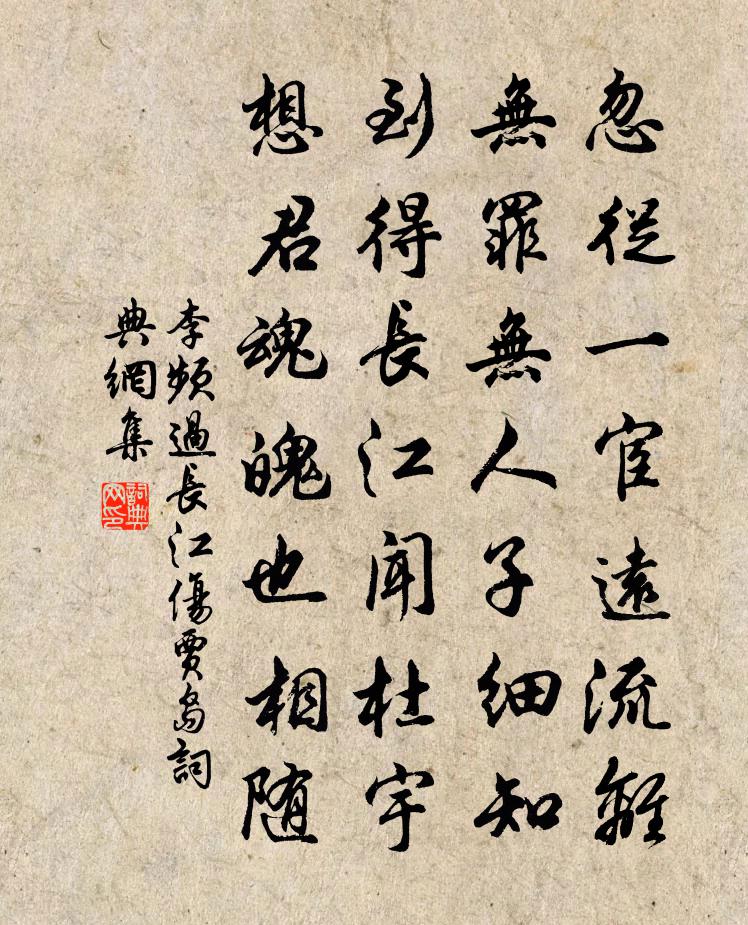 忽從一宦遠流離
無罪無人子細知
到得長江聞杜宇
想君魂魄也相随
李頻過長江傷賈島詞
典網集
詞典
网印